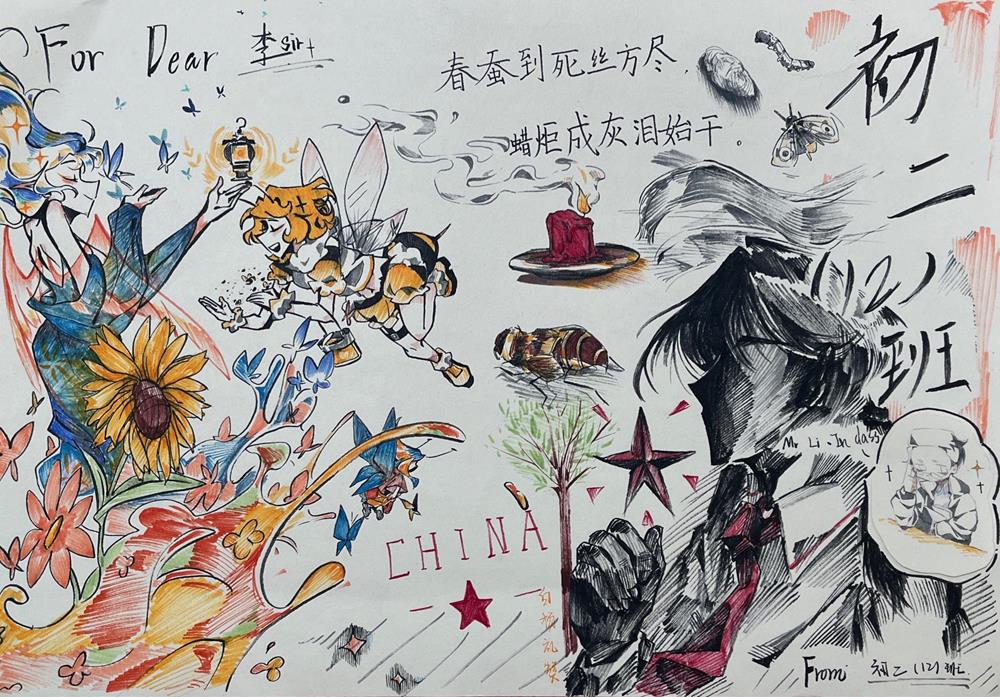 For Dear 李sir
春蚕到死丝方尽,
蜡炬成灰泪始干。
初二(12)班
Mr Li. In class
CHINA
From 初二(12)班